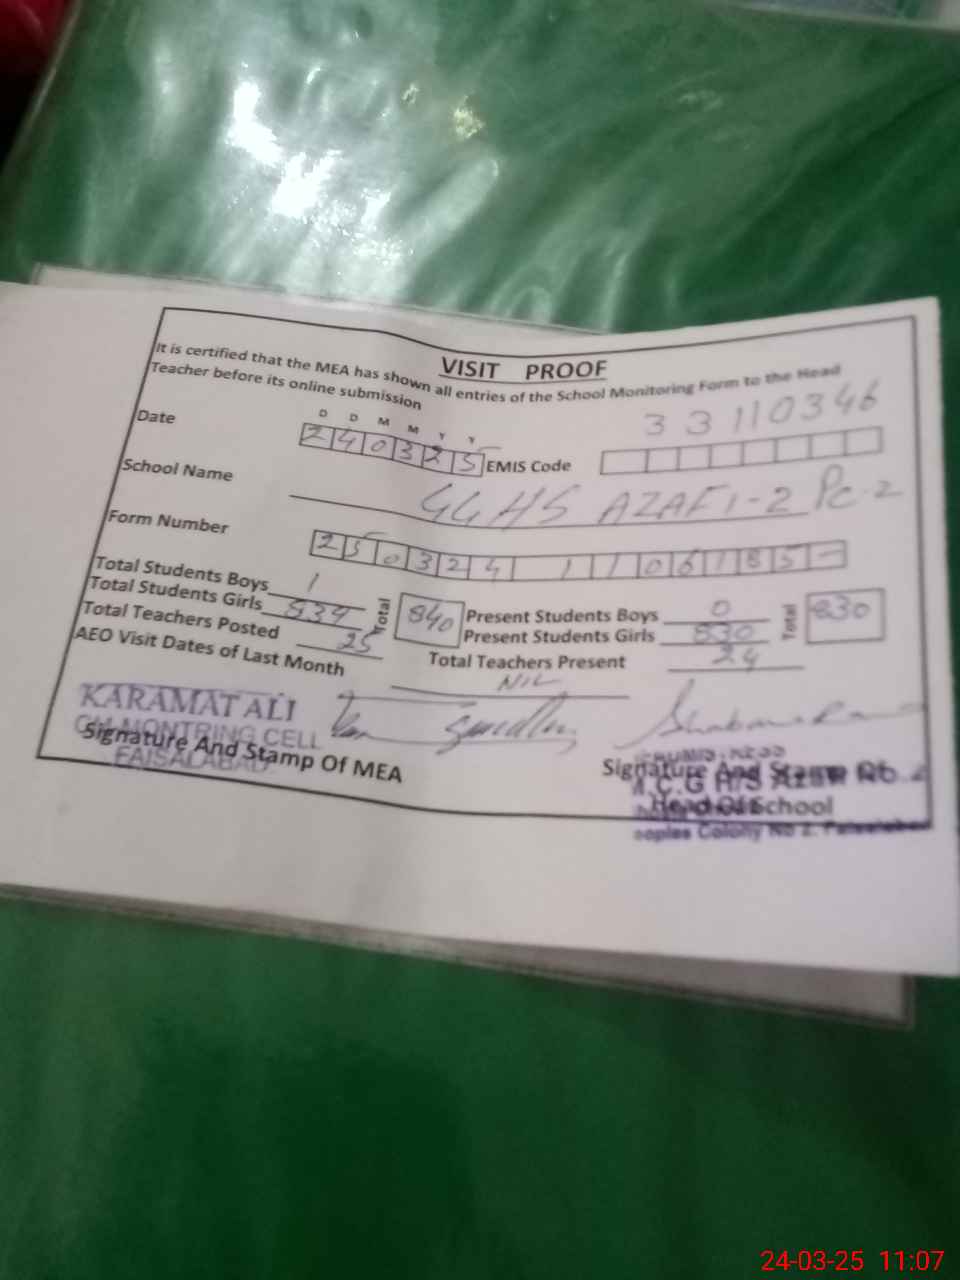 VISIT PROOF
It is certified that the MEA has shown all entries of the School Monitoring Form to the Head
Teacher before its online submission
D D M M Y Y
Date 240325 EMIS Code 33110346
School Name GGHS AZAFI-2 PC-2
Form Number 250324 11106185-
Total Students Boys 1
Total Students Girls 839
Total 840
Present Students Boys 0
Present Students Girls 830
Total 830
Total Teachers Posted 25
Total Teachers Present 24
AEO Visit Dates of Last Month NIL
KARAMAT ALI
MONTRING CELL
FAISALABAD
Signature And Stamp Of MEA
Signature And Stamp Of
Head Of School
Colony No 2.
24-03-25 11:07